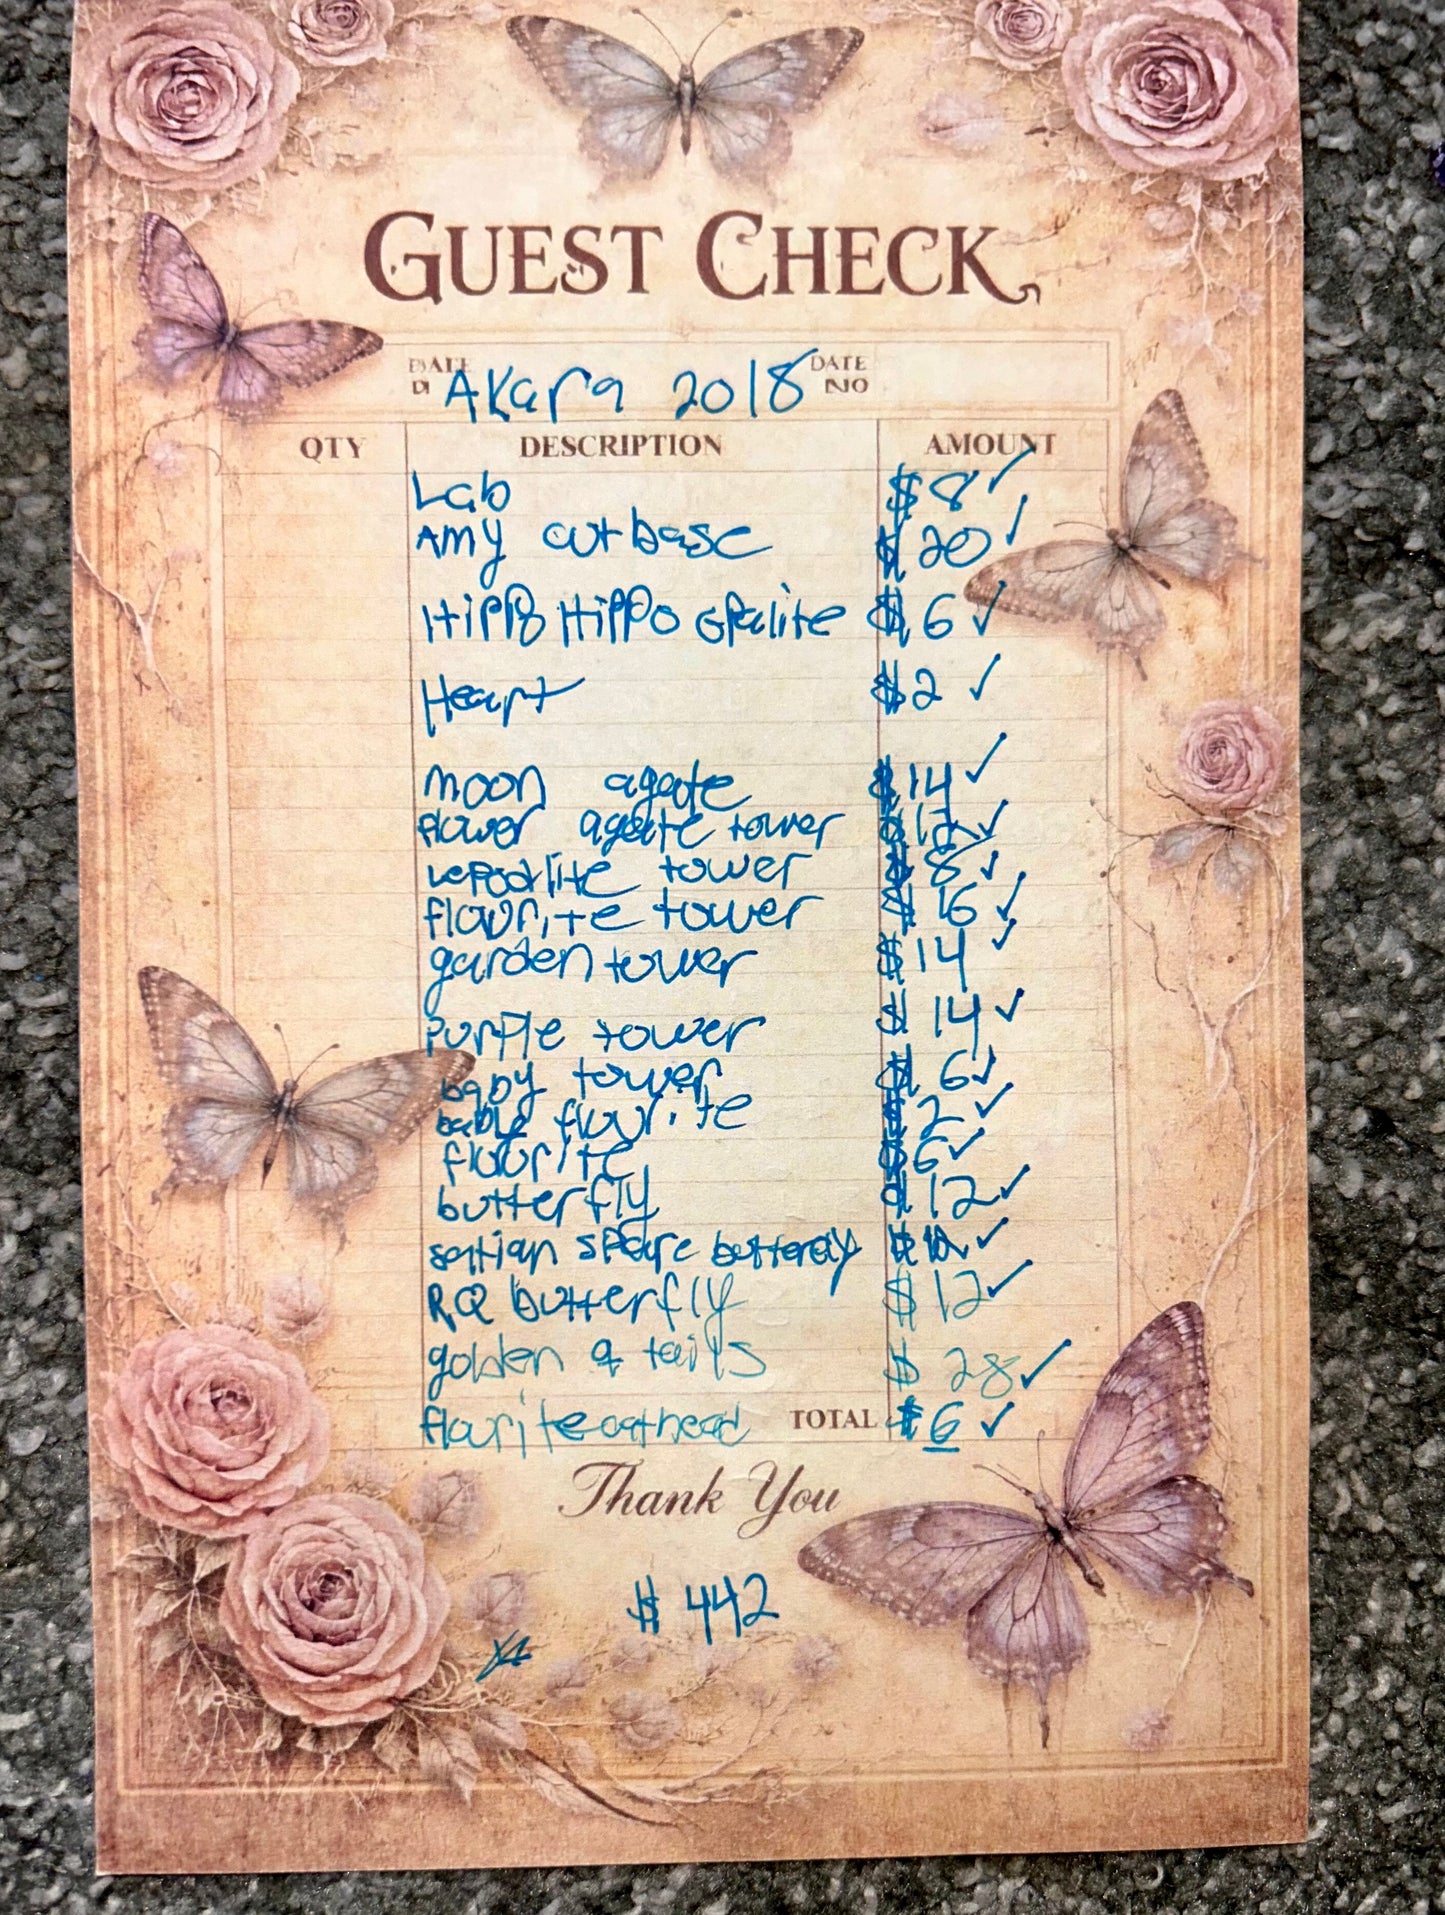 GUEST CHECK
DATE
AKara 2018
DATE
NO
QTY DESCRIPTION AMOUNT
Lab $8 ✓
AMy cutbase $20 ✓
HiPPo HiPPo opalite $6 ✓
Heart $2 ✓
moon agate $14 ✓
flower agate tower $12 ✓
LePodlite tower $8 ✓
flourite tower $16 ✓
garden tower $14 ✓
PurPle tower $14 ✓
baby tower $6 ✓
flourite $2 ✓
flourite $6 ✓
butterfly $12 ✓
satian sPare butterfly ✓
RQ butterfly $12 ✓
golden q tails $28 ✓
flourite cathead TOTAL $6 ✓
Thank You
$442